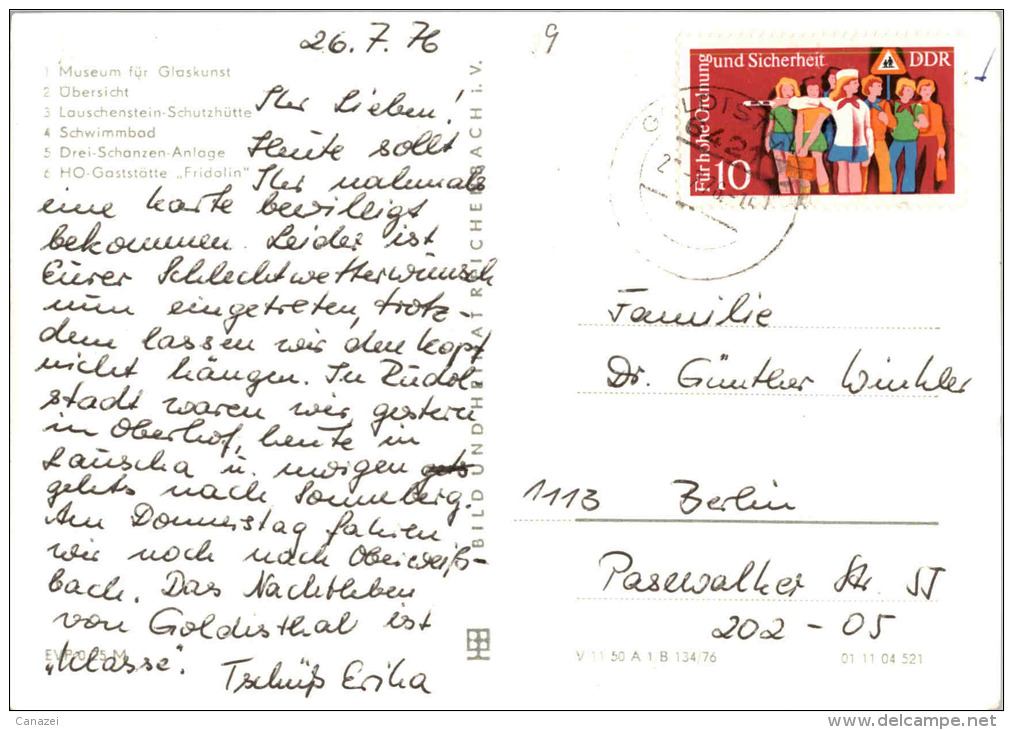 26.7.76
9
1 Museum für Glaskunst
2 Übersicht
3 Lauschenstein-Schutzhütte
4 Schwimmbad
5 Drei-Schanzen-Anlage
6 HO-Gaststätte „Fridolin"
Ihr Lieben!
Heute sollt
Ihr nahmals
eine Karte bewilligt
bekommen. Leider ist
Eurer Schlechtwetterwunsch
nun eingetreten, trotz-
dem lassen wir den Kopf
nicht hängen. In Rudol
stadt waren wir gestern
in Oberhof, heute in
Lauscha u. morgen
gehts nach Sonneberg.
Am Donnerstag fahren
wir noch nach Oberweiß-
bach. Das Nachtleben
von Goldisthal ist
„Klasse".
Tschüß Erika
EVP 0,25 M
BILD UND HEIMAT REICHENBACH I. V.
Für hohe Ordnung und Sicherheit
DDR
10
Familie
Dr. Günther Winkler
1113 Berlin
Pasewalker Str. 55
202 - 05
V 11 50 A 1 B 134/76
01 11 04 521
Canazei
www.delcampe.net